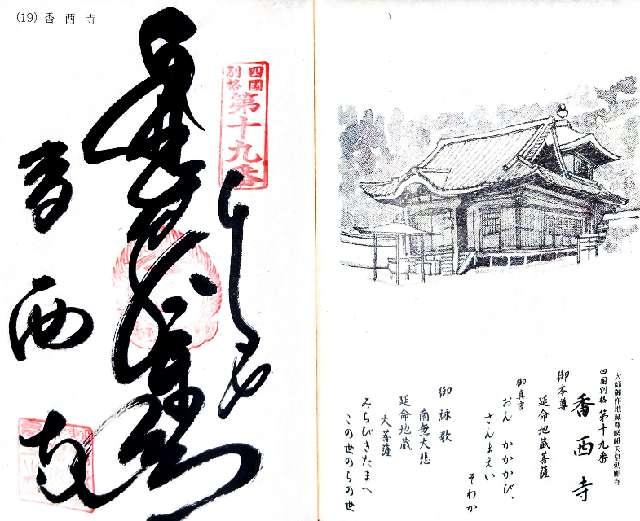 (19) 香西寺
四国
別格
第十九番
香西寺
四国別格 第十九番
香西寺
御本尊
延命地蔵菩薩
御真言
おん かかかび
さんまえい
そわか
御詠歌
南無大悲
延命地蔵
大菩薩
みちびきたまへ
この世のちの世